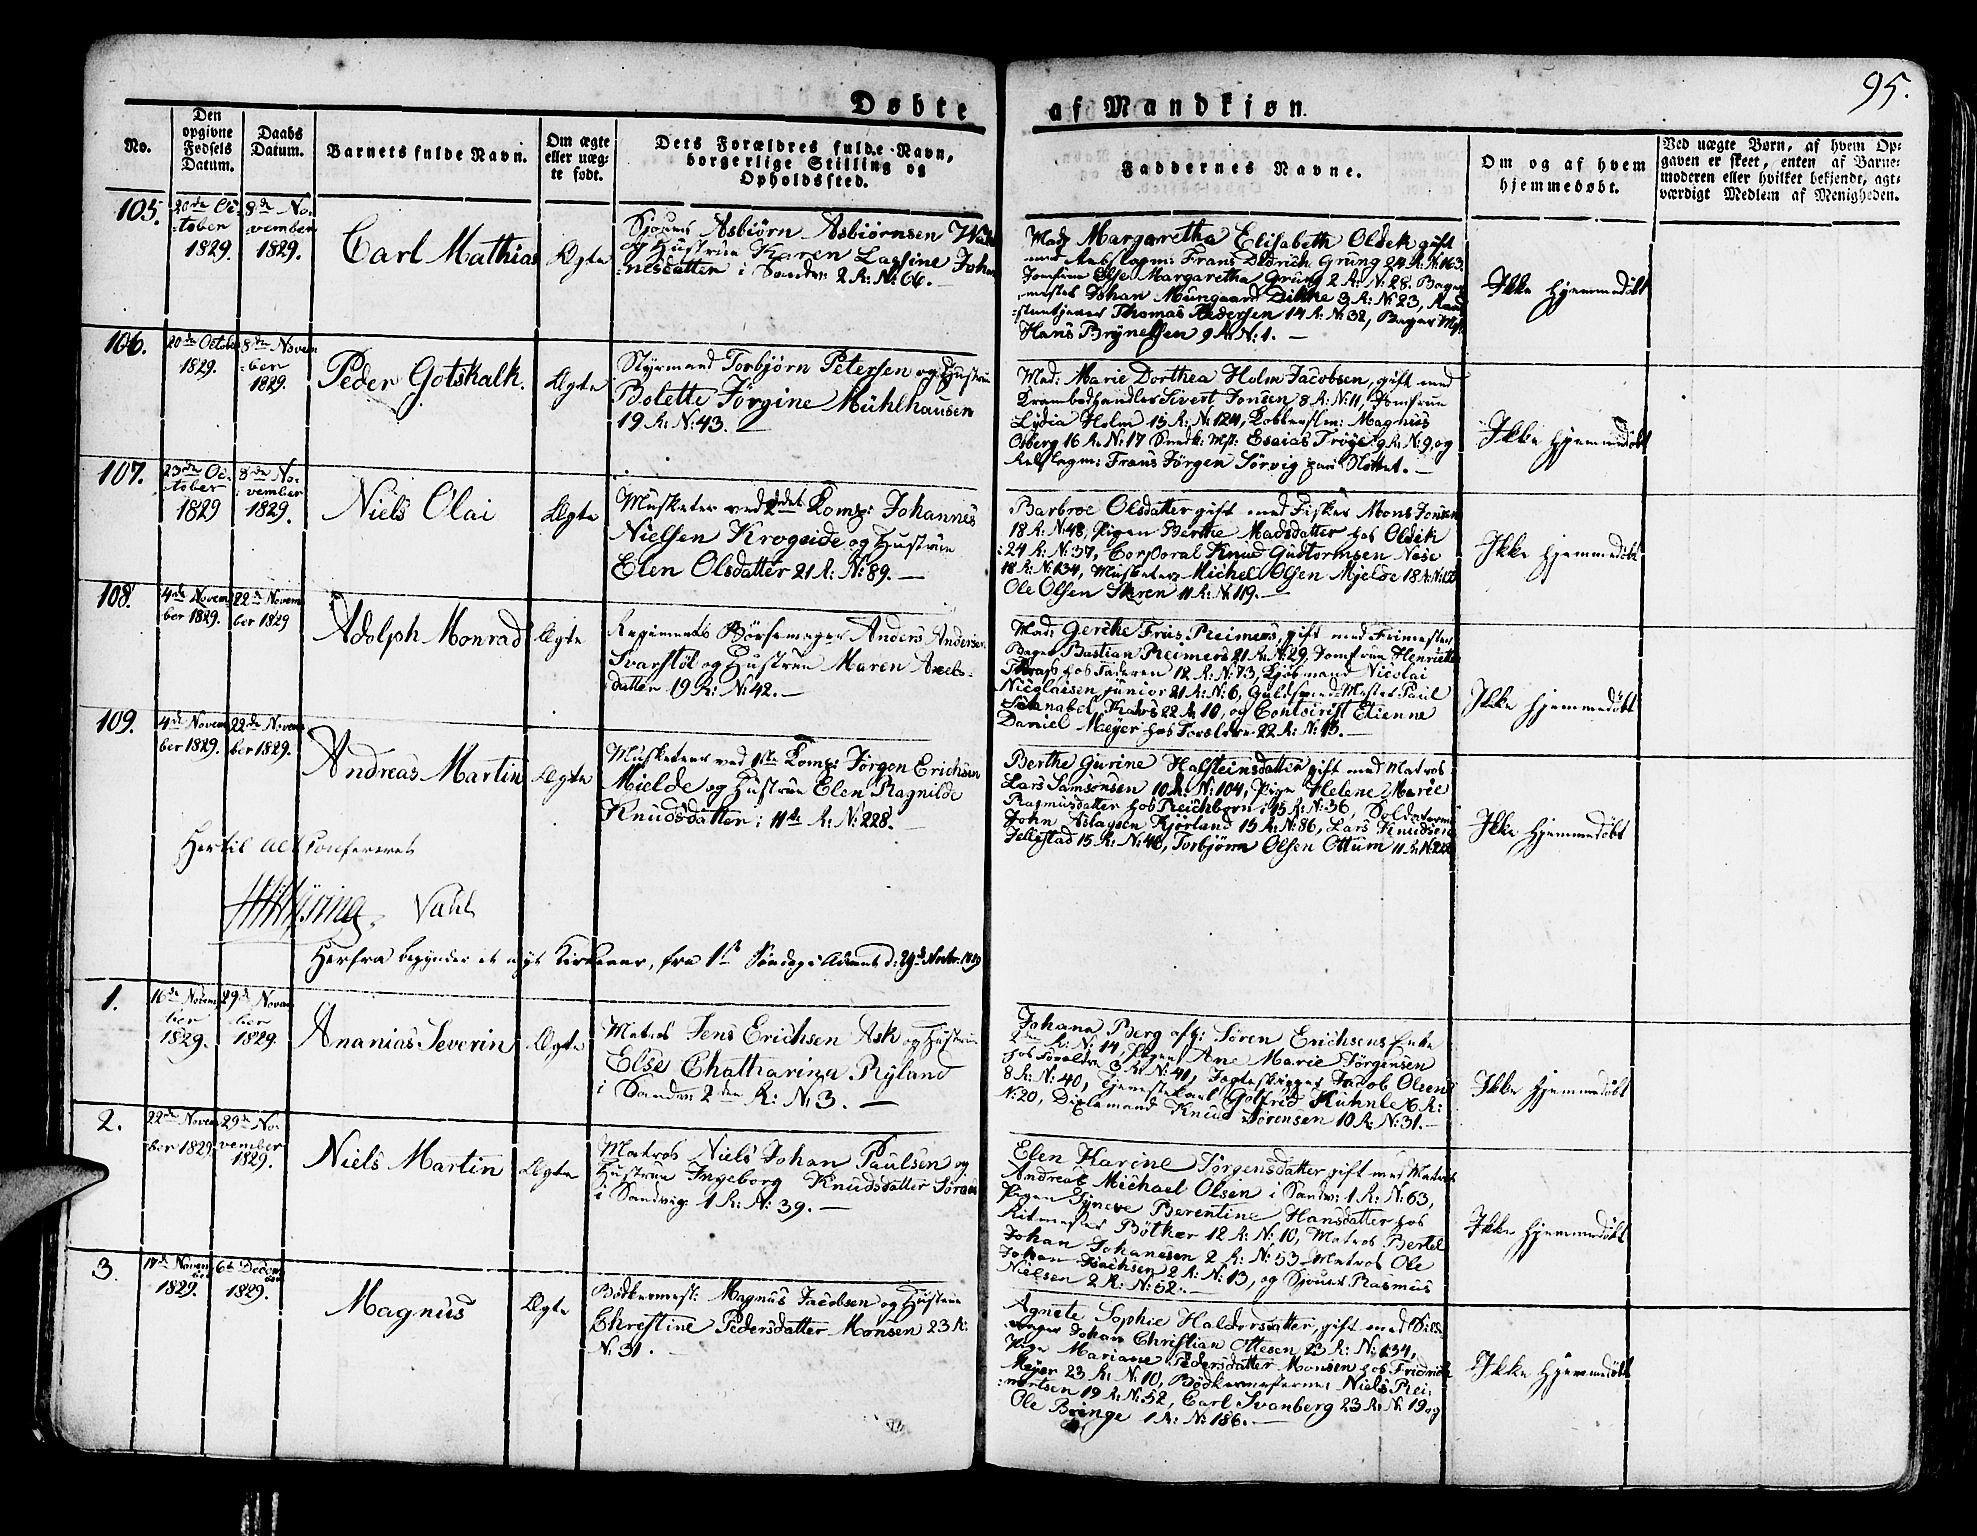 95.
Døbte af Mandkjøn.
No.
Den opgivne Fødsels Datum.
Daabs Datum.
Barnets fulde Navn.
Om ægte eller uægte født.
Dets Forældres fulde Navn, borgerlige Stilling og Opholdssted.
Faddernes Navne.
Om og af hvem hjemmedøbt.
Ved uægte Børn, af hvem Opgaven er skeet, enten af Barnemoderen eller hvilket bekjendt, agtværdigt Medlem af Menigheden.
105.
20de October 1829.
8de November 1829.
Carl Mathias
Ægte
Sjouer Asbiørn Asbiørnsen
og Hustrue Karen
i Sandv: 2 R: N: 66. —
Mad: Margaretha Elisabeth Oldek gift
med Frans Didrich Grung 24 R: N: 163.
Jomfrue Else Margaretha Grung 2 R: N: 28. Bager
mester Johan Mungaard Dikke 3 R: N: 23,
Thomas Pedersen 14 R: N: 32, Bager Mstr
Hans Brynelsen 9 R: N: 1. —
Ikke hjemmedøbt
106.
20de October 1829.
8de November 1829.
Peder Gotskalk.
Ægte
Styrmand Torbjørn Petersen og Hustrue
Bolette Jørgine Mühlhausen
19 R: N: 43. —
Mad: Marie Dorthea Holm Jacobsen, gift med
Krambodhandler Sivert Jonsen 8 R: N: 11, Jomfrue
Lydia Holm 15 R: N: 124, Magnus
Osberg 16 R: N: 17 Snedk: Mst: Esaias Trøye 9 R: N: 9, og
Frans Jørgen Sørvig paa Slottet. —
Ikke hjemmedøbt
107.
23de October 1829
8de November 1829.
Niels Olai
Ægte
Musketer ved 2det Komp: Johannes
Nielsen Krogeide og Hustrue
Elen Olsdatter 21 R: N: 89. —
Barbroe Olsdatter gift med Fisker Mons Jonsen
18 R: N: 48, Pigen Berthe Madsdatter hos Oldek
24 R: N: 37, Corporal Knud Gudtormsen Nese
18 R: N: 134, Musketer: Michel Olsen Mjelde
Ole Olsen Skren 11 R: N: 119. —
Ikke hjemmedøbt
108.
4de November 1829.
22de November 1829
Adolph Monrad
Ægte
Regiments Bøssemager Anders Andersen
Svarstøl og Hustrue Maren Axels-
datter 19 R: N: 42. —
Mad: Gerche Friis Reimers, gift med
Bager Bastian Reimers 21 R: N: 29, Jomfrue Henriette
hos Faderen 12 R: N: 73, Kjøbmand Nicolai
Nicolaisen junior 21 R: N: 6, Guldsmed-Mester Paul
Schnabel Krabs 22 R: 10, og Contoirist Etienne
Daniel Meyer hos 22 R: N: 13. —
Ikke hjemmedøbt
109.
4de November 1829.
22de November 1829.
Andreas Martin
Ægte
Musketeer ved 1ste Komp: Jørgen Erichsen
Mielde og Hustrue Elen Ragnilde
Knudsdatter i 11te R: N: 228. —
Berthe Gurine Halsteinsdatter gift med Matros
Lars Samsonsen 10 R: N: 104, Pige Helene Marie
Rasmusdatter hos Reichborn i 15 R: N: 36, Soldaterne
John Aslagsen Kjørland 15 R: N: 86, Lars Knudsen
Jellestad 15 R: N: 48, Torbjørn Olsen Ottum 11 R: N: 228
Ikke hjemmedøbt
Hertil alt Confereret
Herfra begynder et nyt Kirkeaar, fra 1ste Søndag i Advent d: 29de Novbr. 1829
1.
16de November 1829.
29de November 1829
Ananias Severin
Ægte
Matros Jens Erichsen Ask og Hustrue
Else Chatharina Ryland
i Sandv: 2den R: N: 3. —
Johana Berg afg: Søren Erichsens Enke
2den R: N: 14, Pigen Ane Marie Jørgensen
hos Forældre 3 R: N: 41, Jagteskipper Jacob Olsen
8 R: N: 40, Tjenestekarl Gotfried Kühnle 6 R:
N: 20, Knud Sørensen 10 R: N: 31. —
Ikke hjemmedøbt
2.
22de November 1829
29de November 1829.
Niels Martin
Ægte
Matros Niels Johan Paulsen og
Hustrue Ingeborg Knudsdatter
i Sandvig 1 R: N: 39. —
Elen Karine Jørgensdatter gift med Matros
Andreas Michael Olsen i Sandv: 1 R: N: 63,
Pigen Syneve Berentine Hansdatter hos
Ritmester Bøtker 12 R: N: 10, Matros Bertel
Johan Johanesen 2 R: N: 53 Matros Ole
Johan Isachsen 2 R: N: 13, og Sjouer Rasmus
Nielsen 2 R: N: 52. —
Ikke hjemmedøbt
3.
November 1829.
6te December 1829.
Magnus
Ægte
Bødkermest: Magnus Jacobsen og Hustrue
Christine Pedersdatter Monsen 23 R:
N: 31. —
Agnete Sophie Haldorsdatter, gift med
Johan Christian Ottesen 23 R: N: 134,
Pige Mariane Pedersdatter Monsen hos Fridrich
Meyer 23 R: N: 10, Bødkermesterne: Niels Rei-
mertsen 19 R: N: 52, Carl Svanberg 23 R: N: 19 og
Ole Bringe 1 R: N: 186. —
Ikke hjemmedøbt